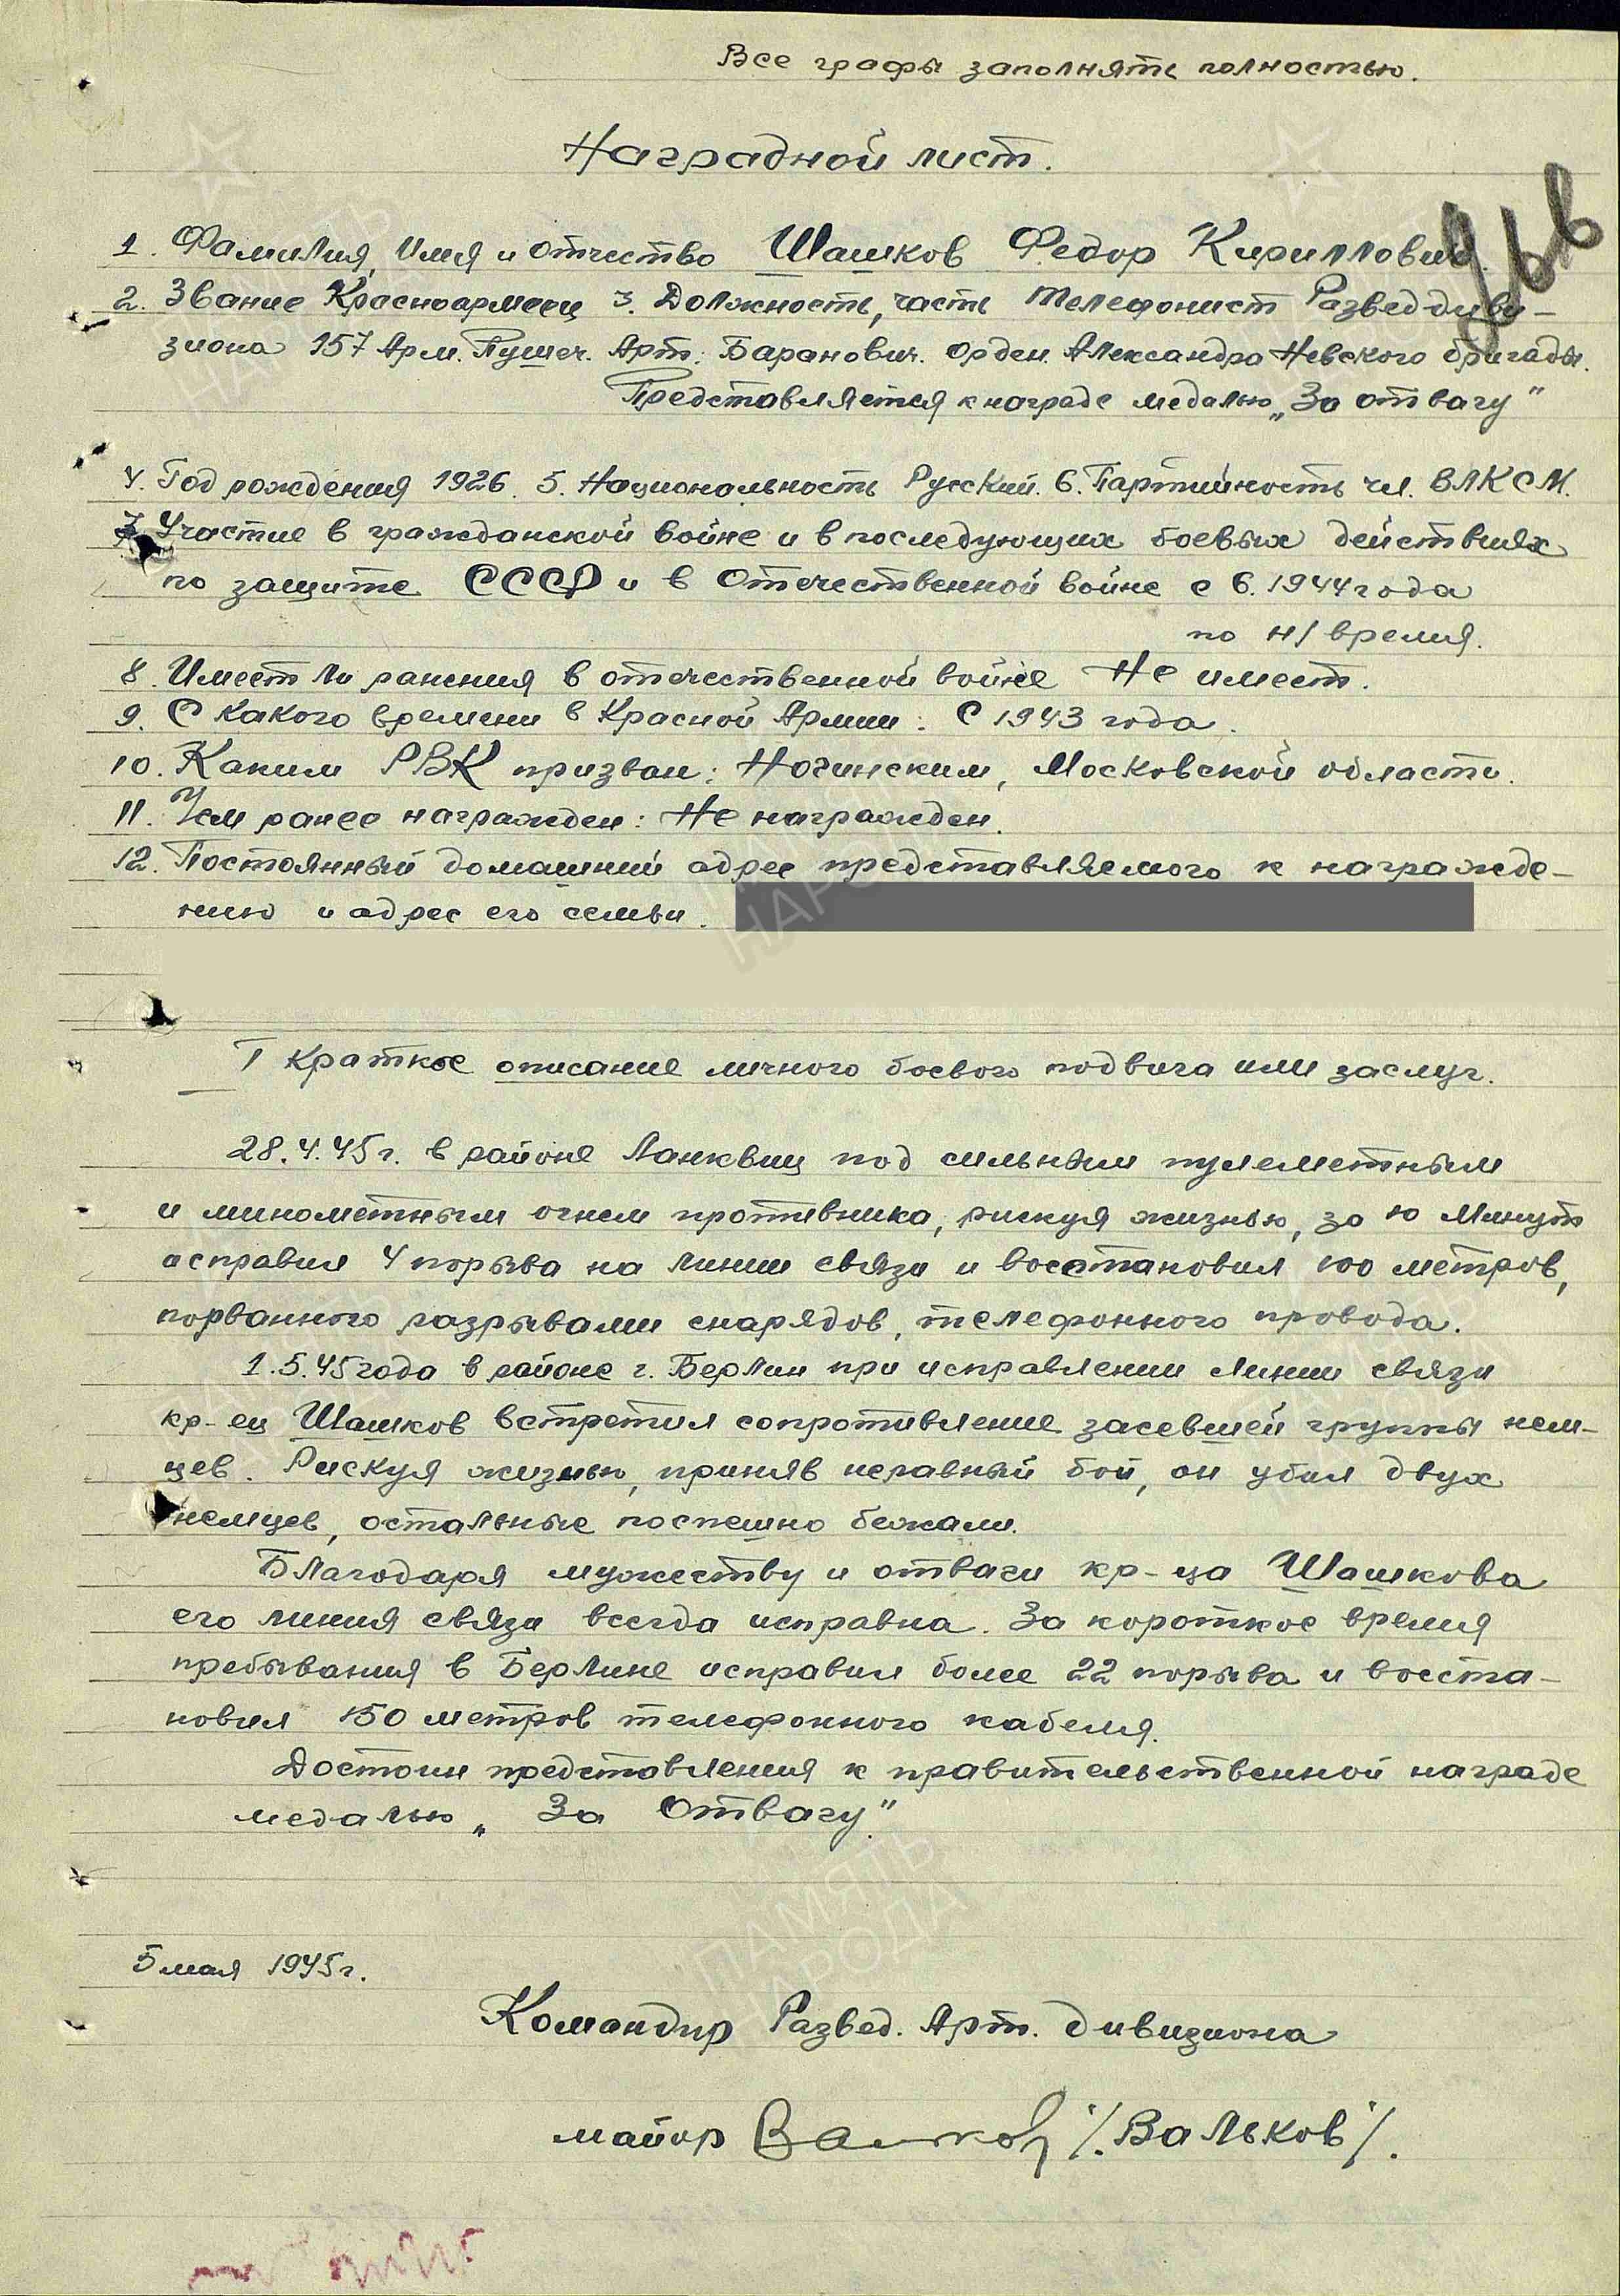 Все графы заполнять полностью.
Наградной лист.
1. Фамилия, Имя и отчество Шашков Федор Кириллович.
2. Звание Красноармеец 3. Должность, часть телефонист Разведдиви-
зиона 157 Арм. Пушеч. Арт. Баранович. Орден. Александра Невского бригады.
Представляется к награде медалью „За отвагу"
4. Год рождения 1926. 5. Национальность Русский. 6. Партийность чл. ВЛКСМ.
7. Участие в гражданской войне и в последующих боевых действиях
по защите СССР и в Отечественной войне с 6. 1944 года
по н/время.
8. Имеет ли ранения в отечественной войне Не имеет.
9. С какого времени в Красной Армии: С 1943 года.
10. Каким РВК призван: Ногинским, Московской области.
11. Чем ранее награжден: Не награжден.
12. Постоянный домашний адрес представляемого к награжде-
нию и адрес его семьи.
I Краткое описание личного боевого подвига или заслуг.
28.4.45 г. в районе Ланквиц под сильным пулеметным
и минометным огнем противника, рискуя жизнью, за 10 минут
исправил 4 порыва на линии связи и восстановил 100 метров,
порванного разрывами снарядов, телефонного провода.
1.5.45 года в районе г. Берлин при исправлении линии связи
кр-ец Шашков встретил сопротивление засевшей группы нем-
цев. Рискуя жизнью, приняв неравный бой, он убил двух
немцев, остальные поспешно бежали.
Благодаря мужеству и отваги кр-ца Шашкова
его линия связи всегда исправна. За короткое время
пребывания в Берлине исправил более 22 порыва и восста-
новил 150 метров телефонного кабеля.
Достоин представления к правительственной награде
медалью „За Отвагу".
5 мая 1945 г.
Командир Развед. Арт. дивизиона
майор Вальков /. Вальков /.
ПАМЯТЬ
НАРОДА